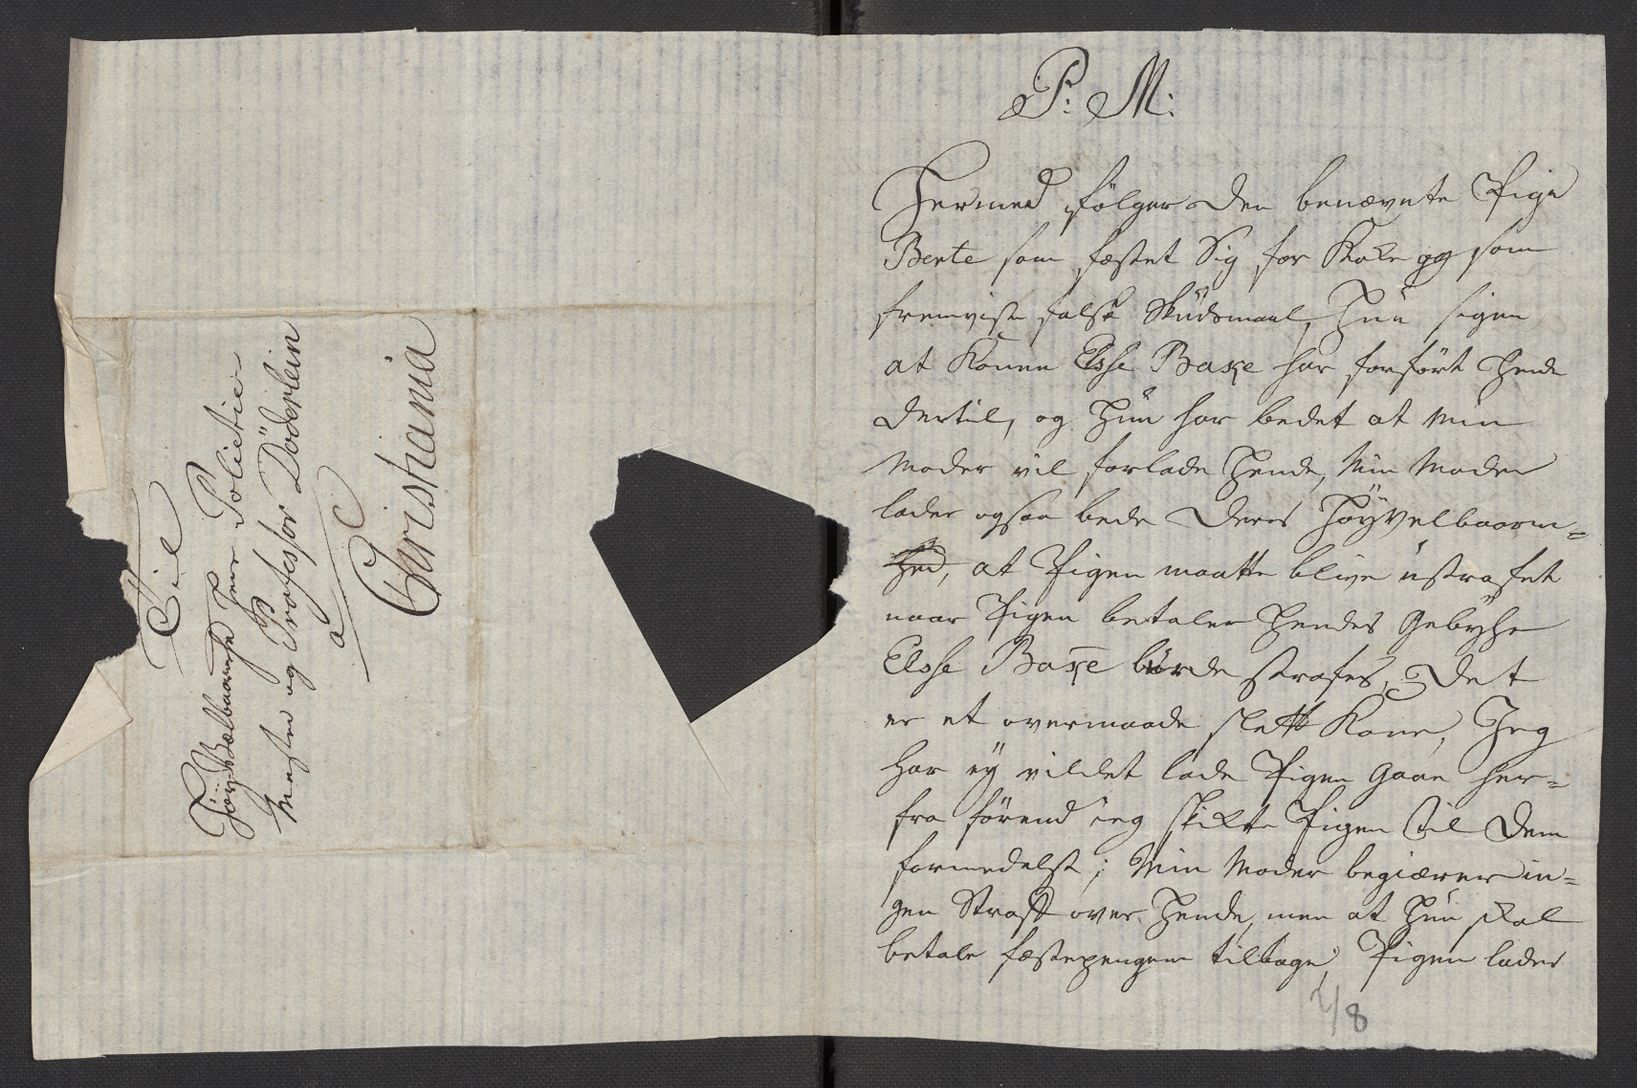 Til
Höy-Velbaarne Herr Politie-
Mester og Professor Döderlein
a
Christiania
P: M:
Hermed følger den benævnte Pige
Berte som fæstet Sig for Koke og som
fremviste falsk Skudsmaal, Hun siger
at Konen Elsse Bake har forført Hende
dertil, og Hun har bedet at Min
Moder vil forlade Hende, Min Moder
lader ogsaa bede Deres Höyvelbaarn=
hed, at Pigen maatte blive ustraffet
naar Pigen betaler Hendes Gebyhr
Elsse Bake burde straffes, Det
er et overmaade slett Kone, Jeg
har ey vildet lade Pigen Gaae her=
fra førend ieg skikte Pigen til Dem
formedelst; Min Moder begiærer in=
gen Straff over Hende, men at Hun skal
betale fæstepengene tilbage, Pigen lader
2/8